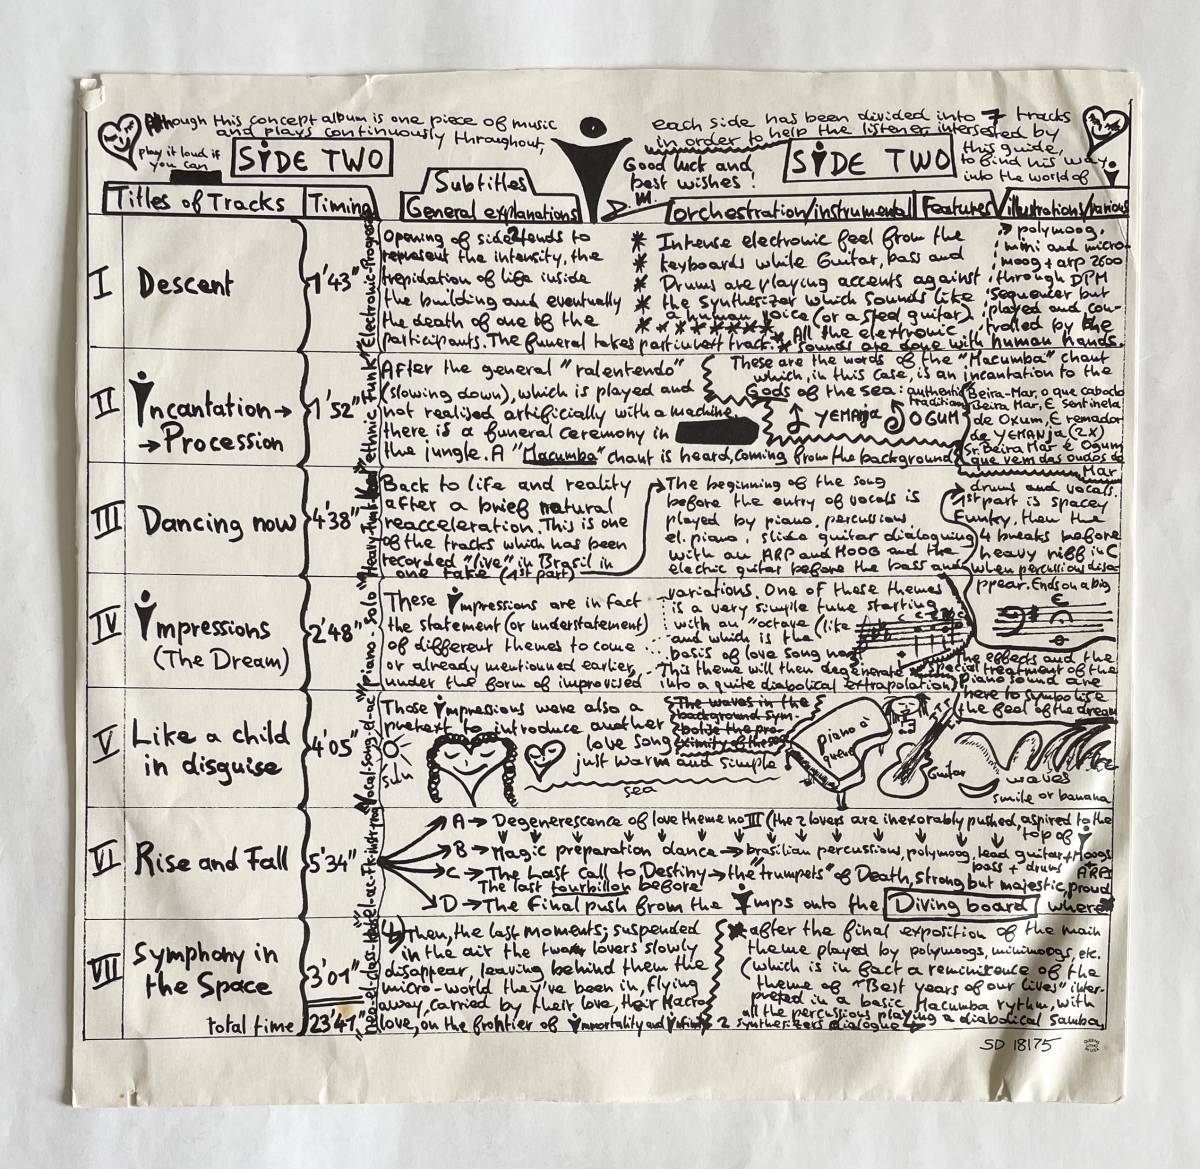 Although this concept album is one piece of music
and plays continuously throughout,
each side has been divided into 7 tracks
in order to help the listener interested by
this guide,
to find his way
into the world of
play it loud if
you can
SiDE TWO
Good luck and
best wishes!
D.M.
SiDE TWO
Titles of Tracks
Timing
Subtitles
General explanations
orchestration/instrumental
Features
illustrations/various
I
Descent
1'43"
Electronic-Progress
Opening of side 2 tends to
represent the intensity, the
trepidation of life inside
the building and eventually
the death of one of the
participants. The funeral takes part in next track.
* Intense electronic feel from the
* keyboards while Guitar, bass and
* Drums are playing accents against
* the synthesizer which sounds like
* a human voice (or a steel guitar)
* * * * * * * * All the electronic
* sounds are done with human hands.
polymoog,
mini and micro-
moog + arp 2600
through DPM
sequencer but
played and con-
trolled by the
II
incantation →
→ Procession
1'52"
"ethnic Funk"
After the general "ralentendo"
(slowing down), which is played and
not realised artificially with a machine,
there is a funeral ceremony in
the jungle. A "Macumba" chant is heard, coming from the background
These are the words of the "Macumba" chant
which, in this case, is an incantation to the
Gods of the sea:
YEMANja
OGUM
authentic
tradition
Beira-Mar, o que caboclo
Beira Mar, E sentinela
de Oxum, E remador
de YEMANja (2X)
Sr. Beira Mar E Ogum
que vem das oudos de
Mar
III
Dancing now
4'38"
"Heavy-Funk-Rock"
Back to life and reality
after a brief natural
reacceleration. This is one
of the tracks which has been
recorded "live" in Brasil in
one take (1st part)
The beginning of the song
before the entry of vocals is
played by piano, percussions,
el. piano, slide guitar dialoguing
with an ARP and MOOG and the
electric guitar before the bass and
drums and vocals.
1st part is spacey
Funky, then the
4 breaks before
heavy riff in C
when percussions disa-
ppear. Ends on a big
E
IV
impressions
(The Dream)
2'48"
"piano-Solo"
These impressions are in fact
the statement (or understatement)
of different themes to come
or already mentionned earlier,
under the form of improvised
variations. One of those themes
is a very simple tune starting
with an "octave (like
and which is the
basis of love song no
This theme will then degenerate
into a quite diabolical extrapolation
The effects and the
special treatment of the
piano sound are
here to symbolise
the feel of the dream
V
Like a child
in disguise
4'05"
"Vocal-song-el-ac"
Those impressions were also a
pretext to introduce another
love song
just warm and simple
The waves in the
background sym-
bolise the pro-
ximity of the sea
sun
sea
piano à
queue
Guitar
waves
smile or banana
VI
Rise and Fall
5'34"
A → Degenerescence of love theme no III (the 2 lovers are inexorably pushed, aspired to the
top of
B → Magic preparation dance → brasilian percussions, polymoog, lead guitar + Moogs
bass + drums + ARPs
C → The Last Call to Destiny → the "trumpets" of Death, strong but majestic, proud
The last tourbillon before
D → The final push from the imps onto the Diving board where
VII
Symphony in
the Space
3'01"
Then, the last moments; suspended
in the air the two lovers slowly
disappear, leaving behind them the
micro-world they've been in, flying
away, carried by their love, their Macro
love, on the frontier of immortality and infinity
* after the final exposition of the main
theme played by polymoogs, minimoogs, etc.
(which is in fact a reminiscence of the
theme of "Best years of our lives" inter-
preted in a basic Macumba rythm, with
all the percussions playing a diabolical samba,
2 synthesizers dialogue
total time
23'41"
SD 18175